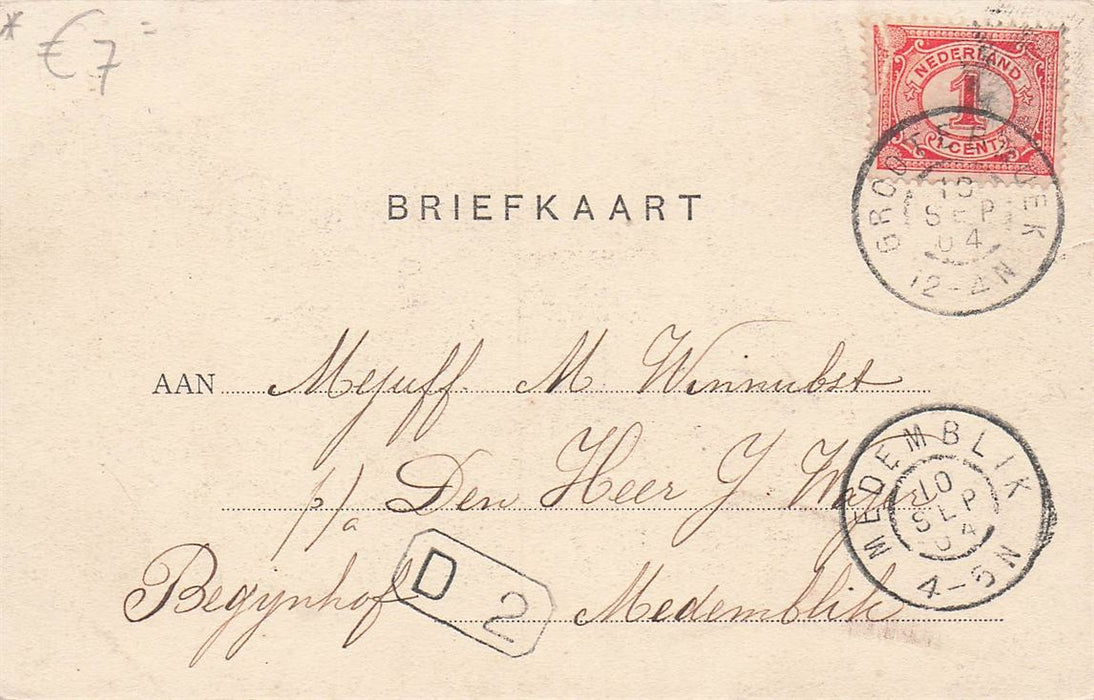 * €7 =
NEDERLAND
1
1 CENT
GROOTEBROEK
10
SEP
04
12-4N
BRIEFKAART
AAN Mejuff. M. Winnubst
p/a Den Heer J
Begijnhof Medemblik
MEDEMBLIK
10
SEP
04
4-5N
D 2